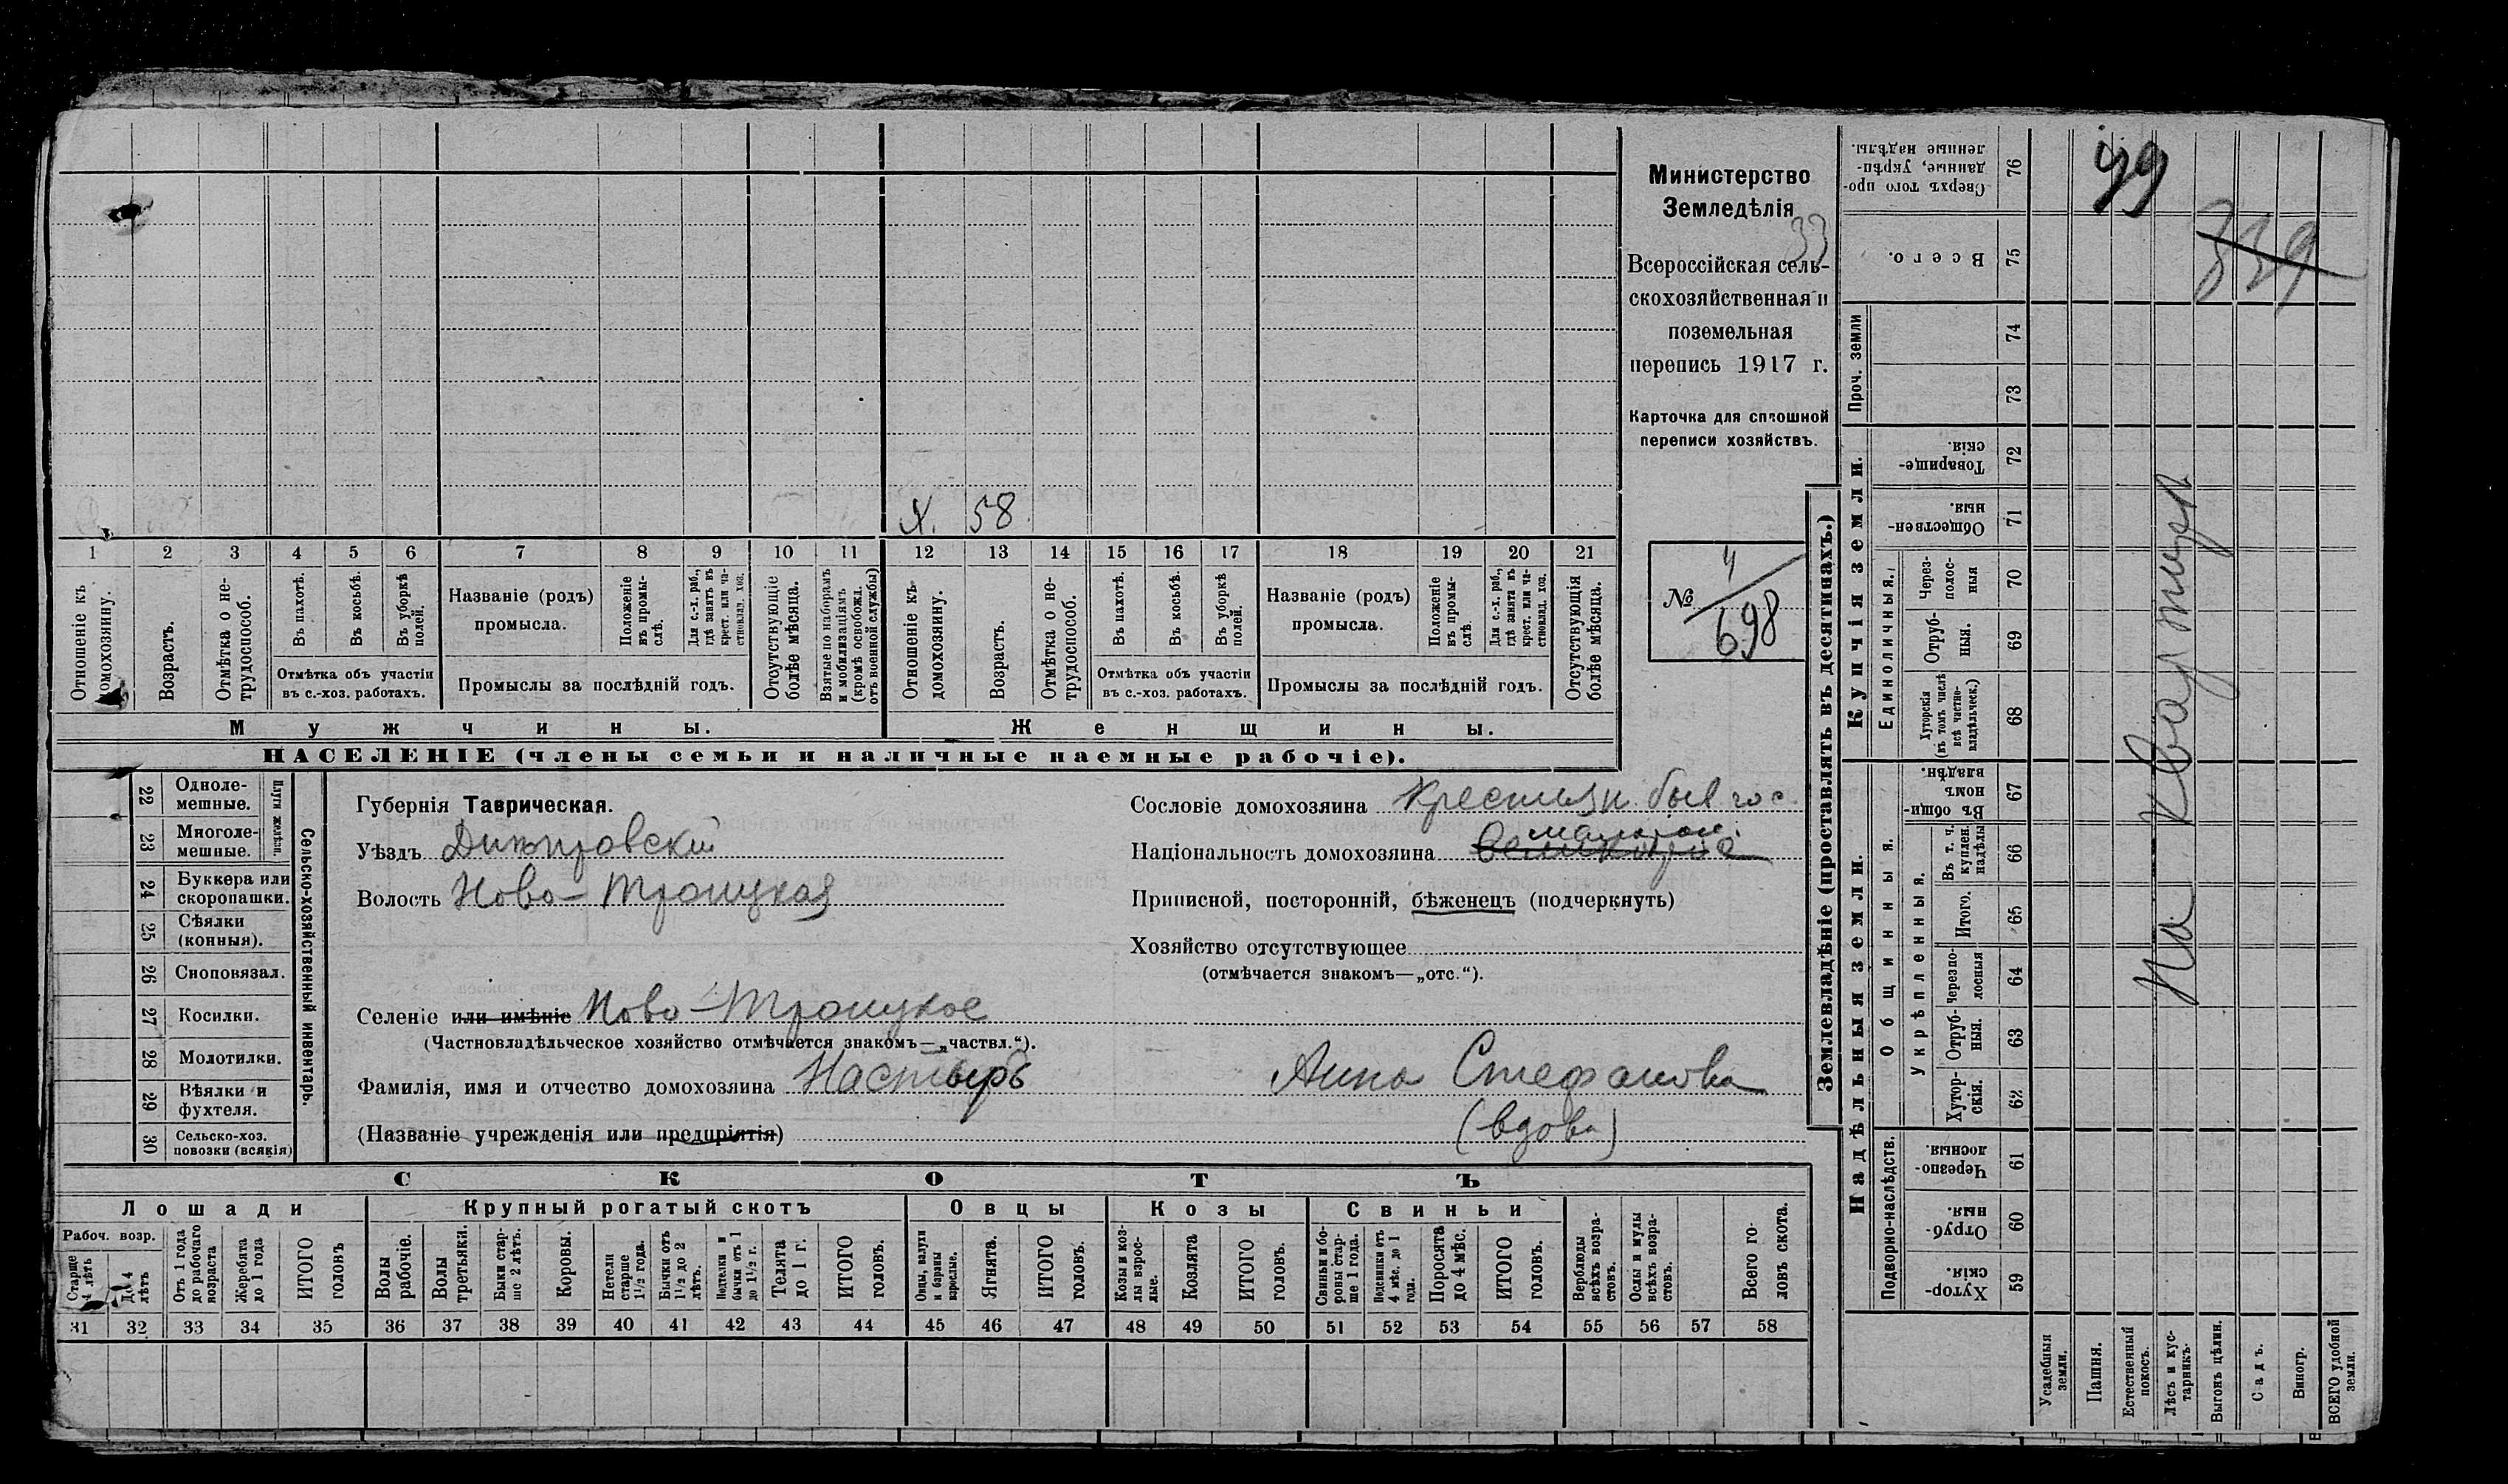 Х. 58.
1 2 3 4 5 6 7 8 9 10 11 12 13 14 15 16 17 18 19 20 21
Отношеніе къ домохозяину.
Возрастъ.
Отмѣтка о не-
трудоспособ.
Въ пахотѣ.
Въ косьбѣ.
Въ уборкѣ
полей.
Отмѣтка объ участіи
въ с.-хоз. работахъ.
Названіе (родъ)
промысла.
Положеніе
въ промы-
слѣ.
Для с.-х. раб.,
гдѣ занятъ въ
крест. или ча-
стновлад. хоз.
Промыслы за послѣдній годъ.
Отсутствующіе
болѣе мѣсяца.
Взятые по наборамъ
и мобилизаціямъ
(кромѣ освобожд.
отъ военной службы)
Отношеніе къ
домохозяину.
Возрастъ.
Отмѣтка о не-
трудоспособ.
Въ пахотѣ.
Въ косьбѣ.
Въ уборкѣ
полей.
Отмѣтка объ участіи
въ с.-хоз. работахъ.
Названіе (родъ)
промысла.
Положеніе
въ промы-
слѣ.
Для с.-х. раб.,
гдѣ занята въ
крест. или ча-
стновлад. хоз.
Промыслы за послѣдній годъ.
Отсутствующія
болѣе мѣсяца.
Мужчины.
Женщины.
НАСЕЛЕНІЕ (члены семьи и наличные наемные рабочіе).
Министерство
Земледѣлія
33
Всероссійская сель-
скохозяйственная и
поземельная
перепись 1917 г.
Карточка для сплошной
переписи хозяйствъ.
№ 4/698
22 Одноле-
мешные.
23 Многоле-
мешные.
Плуги желѣзн.
24 Буккера или
скоропашки.
25 Сѣялки
(конныя).
26 Сноповязал.
27 Косилки.
28 Молотилки.
29 Вѣялки и
фухтеля.
30 Сельско-хоз.
повозки (всякія)
Сельско-хозяйственный инвентарь.
Губернія Таврическая.
Уѣздъ Днѣпровскій
Волость Ново-Троицкая
Селеніе или имѣніе Ново-Троицкое
(Частновладѣльческое хозяйство отмѣчается знакомъ—„частвл.“).
Фамилія, имя и отчество домохозяина Настырь Анна Стефанова
(Названіе учрежденія или предпріятія) (вдова)
Сословіе домохозяина Крестьян. быв гос
Національность домохозяина
Приписной, посторонній, бѣженецъ (подчеркнуть)
Хозяйство отсутствующее
(отмѣчается знакомъ—„отс.“).
СКОТЪ
Лошади
Крупный рогатый скотъ
Овцы
Козы
Свиньи
Рабоч. возр.
Старше
4 лѣтъ
До 4
лѣтъ
Отъ 1 года
до рабочаго
возраста
Жеребята
до 1 года
ИТОГО
головъ
Волы
рабочіе.
Волы
третьяки.
Быки стар-
ше 2 лѣтъ.
Коровы.
Нетели
старше
1½ года.
Бычки отъ
1½ до 2
лѣтъ.
Подтелки и
бычки отъ 1
до 1½ г.
Телята
до 1 г.
ИТОГО
головъ.
Овцы, валухи
и бараны
взрослые.
Ягнята.
ИТОГО
головъ.
Козы и коз-
лы взрос-
лые.
Козлята
ИТОГО
головъ.
Свиньи и бо-
ровы стар-
ше 1 года.
Подсвинки отъ
4 мѣс. до 1
года.
Поросята
до 4 мѣс.
ИТОГО
головъ.
Верблюды
всѣхъ возра-
стовъ.
Ослы и мулы
всѣхъ возра-
стовъ.
Всего го-
ловъ скота.
31 32 33 34 35 36 37 38 39 40 41 42 43 44 45 46 47 48 49 50 51 52 53 54 55 56 57 58
Землевладѣніе (проставлять въ десятинахъ.)
Купчія земли.
Надѣльныя земли.
Проч. земли
Единоличныя.
Общинныя.
Укрѣпленныя.
Подворно-наслѣдств.
Сверхъ того про-
данные, укрѣп-
ленные надѣлы.
76
Всего.
75
74
73
Товарище-
скія.
72
Обществен-
ныя.
71
Через-
полос-
ныя
70
Отруб-
ныя.
69
Хуторскія
(въ томъ числѣ
всѣ частно-
владѣльческ.)
68
Въ общин-
номъ
владѣн.
67
Въ т. ч.
куплен.
надѣлы
66
Итого.
65
Черезпо-
лосныя
64
Отруб-
ныя.
63
Хутор-
скія.
62
Черезпо-
лосныя.
61
Отруб-
ныя.
60
Хутор-
скія.
59
Усадебныя
земли.
Пашня.
Естественный
покосъ.
Лѣсъ и кус-
тарникъ.
Выгонъ цѣлин.
Садъ.
Виногр.
ВСЕГО удобной
земли.
339
На квартирѣ